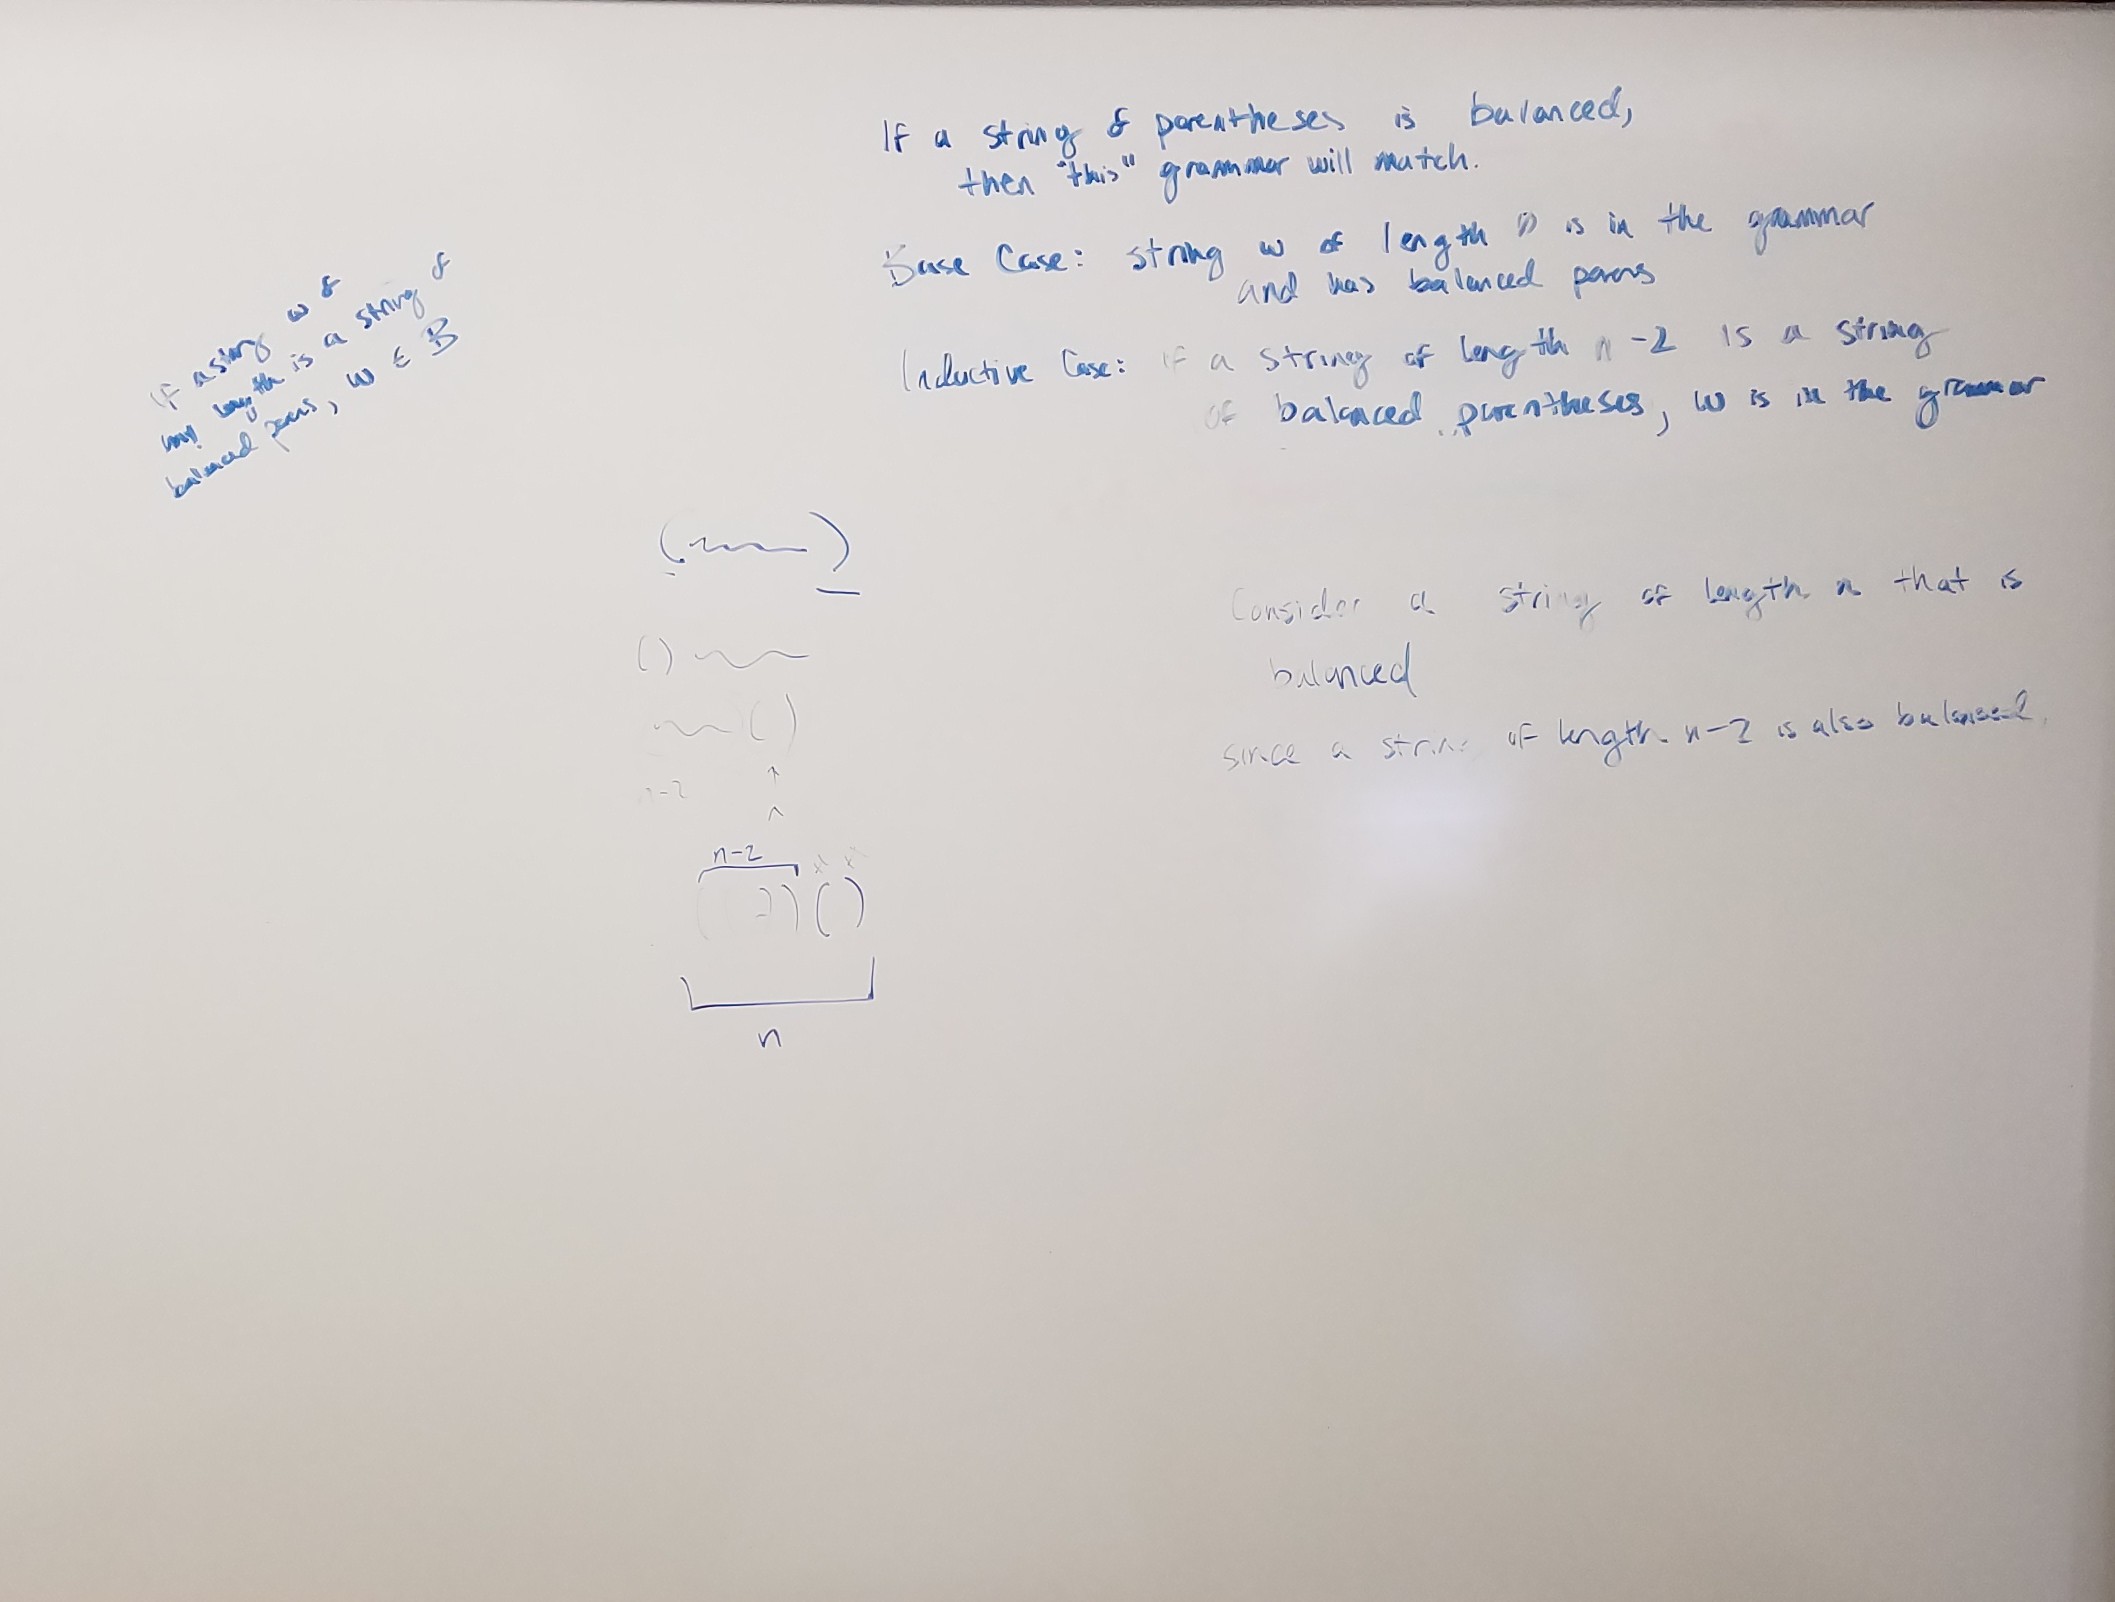 If a string of parentheses is balanced,
then "this" grammar will match.
Base Case: string w of length 0 is in the grammar
and has balanced parens
Inductive Case: if a string of length n-2 is a string
of balanced parentheses, w is in the grammar
If a string w of
any length is a string of
balanced parens, w ∈ B
( )
( )
( )
n-2
n-2
+1 +1
( ) ) ( )
n
Consider a string of length n that is
balanced
since a string of length n-2 is also balanced,